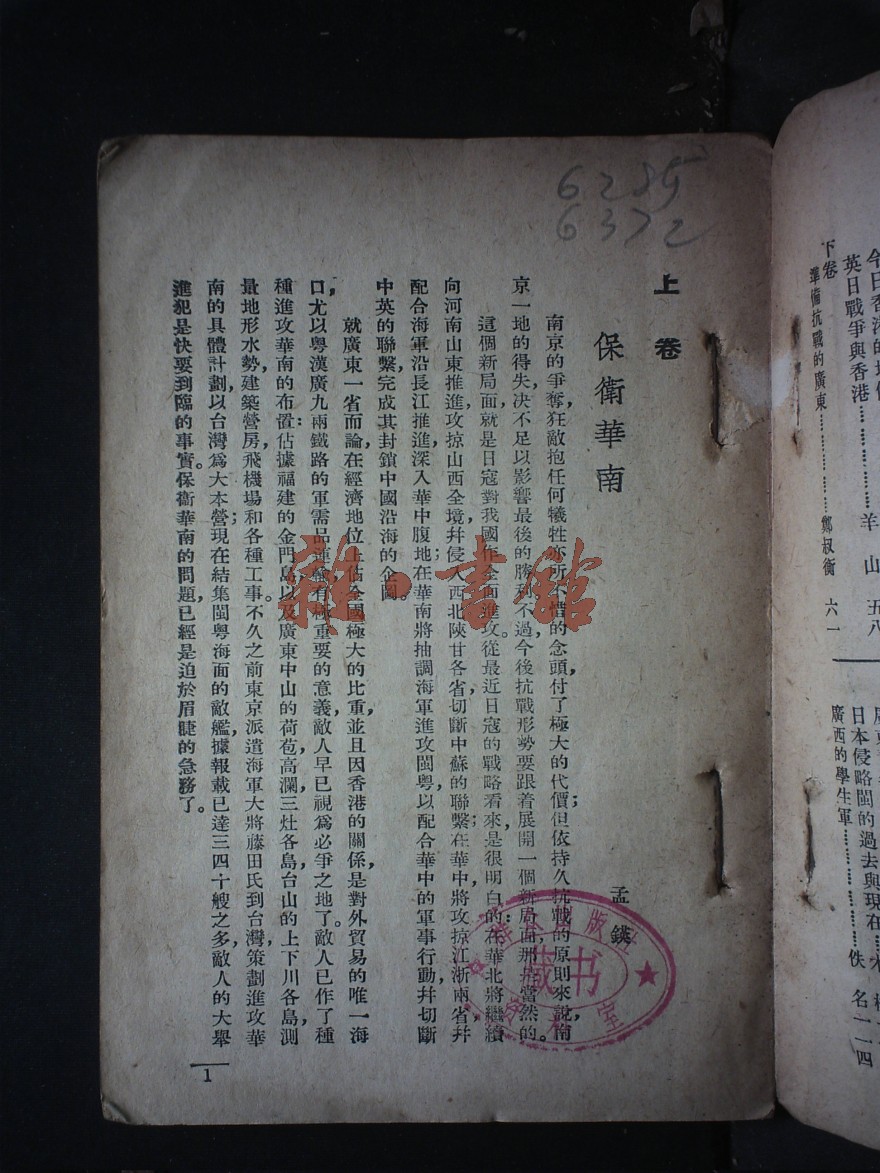 6285
6372
上卷
保衛華南
孟鍈
南京的爭奪，狂敵抱任何犧牲亦所不惜的念頭，付了極大的代價；但依持久抗戰的原則來說，南
京一地的得失，決不足以影響最後的勝利。不過，今後抗戰形勢要跟着展開一個新局面，那是當然的。
這個新局面，就是日寇對我國作全面進攻。從最近日寇的戰略看來，是很明白的：在華北將繼續
向河南山東推進，攻掠山西全境，幷侵入西北陝甘各省，切斷中蘇的聯繫；在華中將攻掠江浙兩省，幷
配合海軍沿長江推進，深入華中腹地；在華南將抽調海軍進攻閩粵，以配合華中的軍事行動，幷切斷
中英的聯繫，完成其封鎖中國沿海的企圖。
就廣東一省而論，在經濟地位上佔全國極大的比重，並且因香港的關係，是對外貿易的唯一海
口，尤以粵漢廣九兩鐵路的軍需品運輸有極重要的意義，敵人早已視爲必爭之地了。敵人已作了種
種進攻華南的布置：佔據福建的金門島以及廣東中山的荷苞，高瀾，三灶各島，台山的上下川各島，測
量地形水勢，建築營房，飛機場和各種工事。不久之前，東京派遣海軍大將藤田氏到台灣，策劃進攻華
南的具體計劃，以台灣爲大本營；現在結集閩粵海面的敵艦，據報載已達三四十艘之多，敵人的大舉
進犯是快要到臨的事實。保衛華南的問題，已經是迫於眉睫的急務了。
1
英日戰爭與香港………………羊山 五八
下卷
準備抗戰的廣東………………鄭叔衡 六一
日本侵略閩的過去與現在
廣西的學生軍………………佚名 一一四
雜·書館
藏书